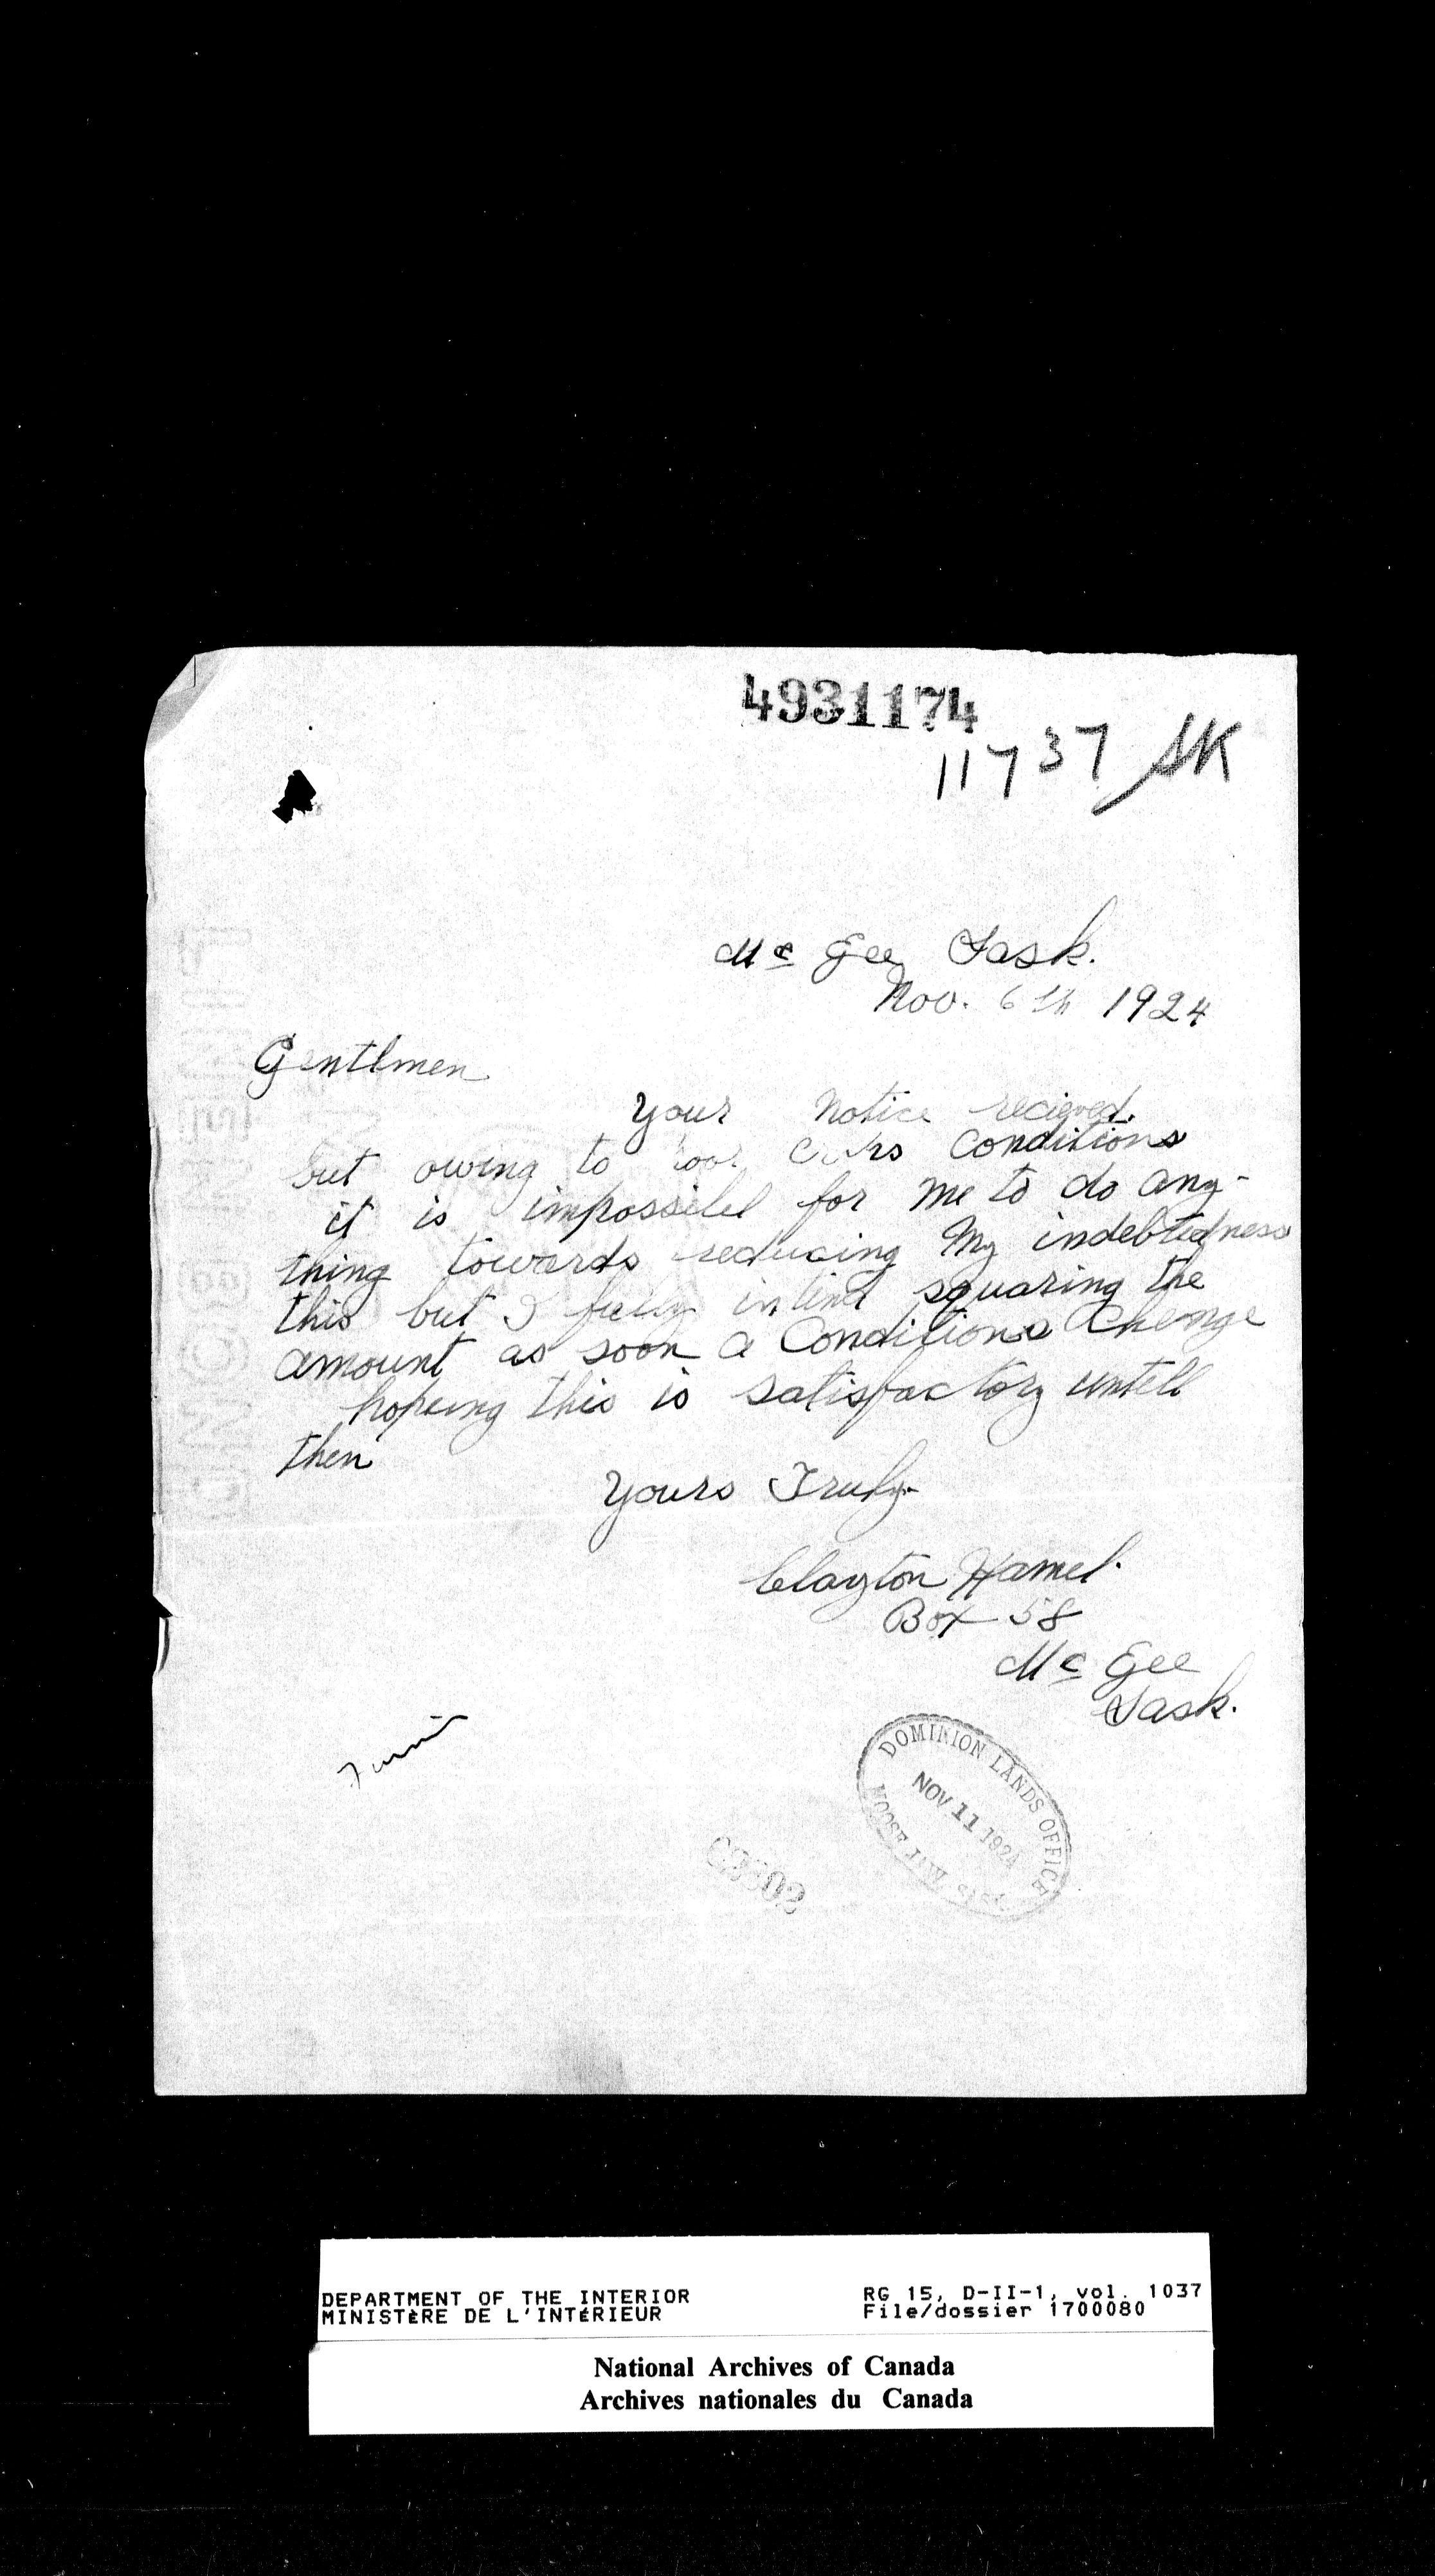 4931174
11737 SK
Mc Gee Sask.
Nov. 6th 1924
Gentlmen
Your Notice recieved.
but owing to Conditions
it is impossibel for me to do any-
thing towards reducing My indebtedness
this but I fully intind squaring the
amount as soon a Conditions Change
hopeing this is satisfactory untell
then
Yours Truly.
Clayton Hamel.
Box 58
Mc Gee
Sask.
DOMINION LANDS OFFICE
NOV 11 1924
MOOSE JAW Sask.
DEPARTMENT OF THE INTERIOR
MINISTÈRE DE L'INTÉRIEUR
RG 15, D-II-1, vol. 1037
File/dossier 1700080
National Archives of Canada
Archives nationales du Canada